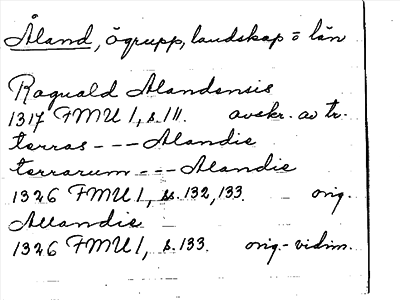 Åland, ögrupp, landskap o län
Ragnald Alandensis
1317 FMU 1, s.111. avskr. av tr.
terras - - - Alandie
terrarum - - - Alandie
1326 FMU 1, ss.132, 133. orig.
Allandie
1326 FMU 1, s.133. orig.-vidim.